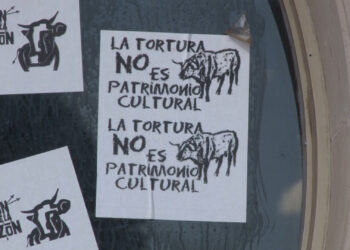 LA TORTURA
NO ES
PATRIMONIO
CULTURAL
LA TORTURA
NO ES
PATRIMONIO
CULTURAL